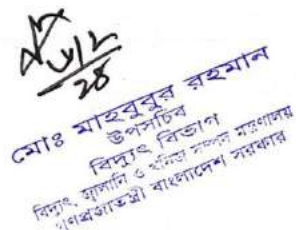 ৮/২
২৪
মোঃ মাহবুবুর রহমান
উপসচিব
বিদ্যুৎ বিভাগ
বিদ্যুৎ, জ্বালানি ও খনিজ সম্পদ মন্ত্রণালয়
গণপ্রজাতন্ত্রী বাংলাদেশ সরকার